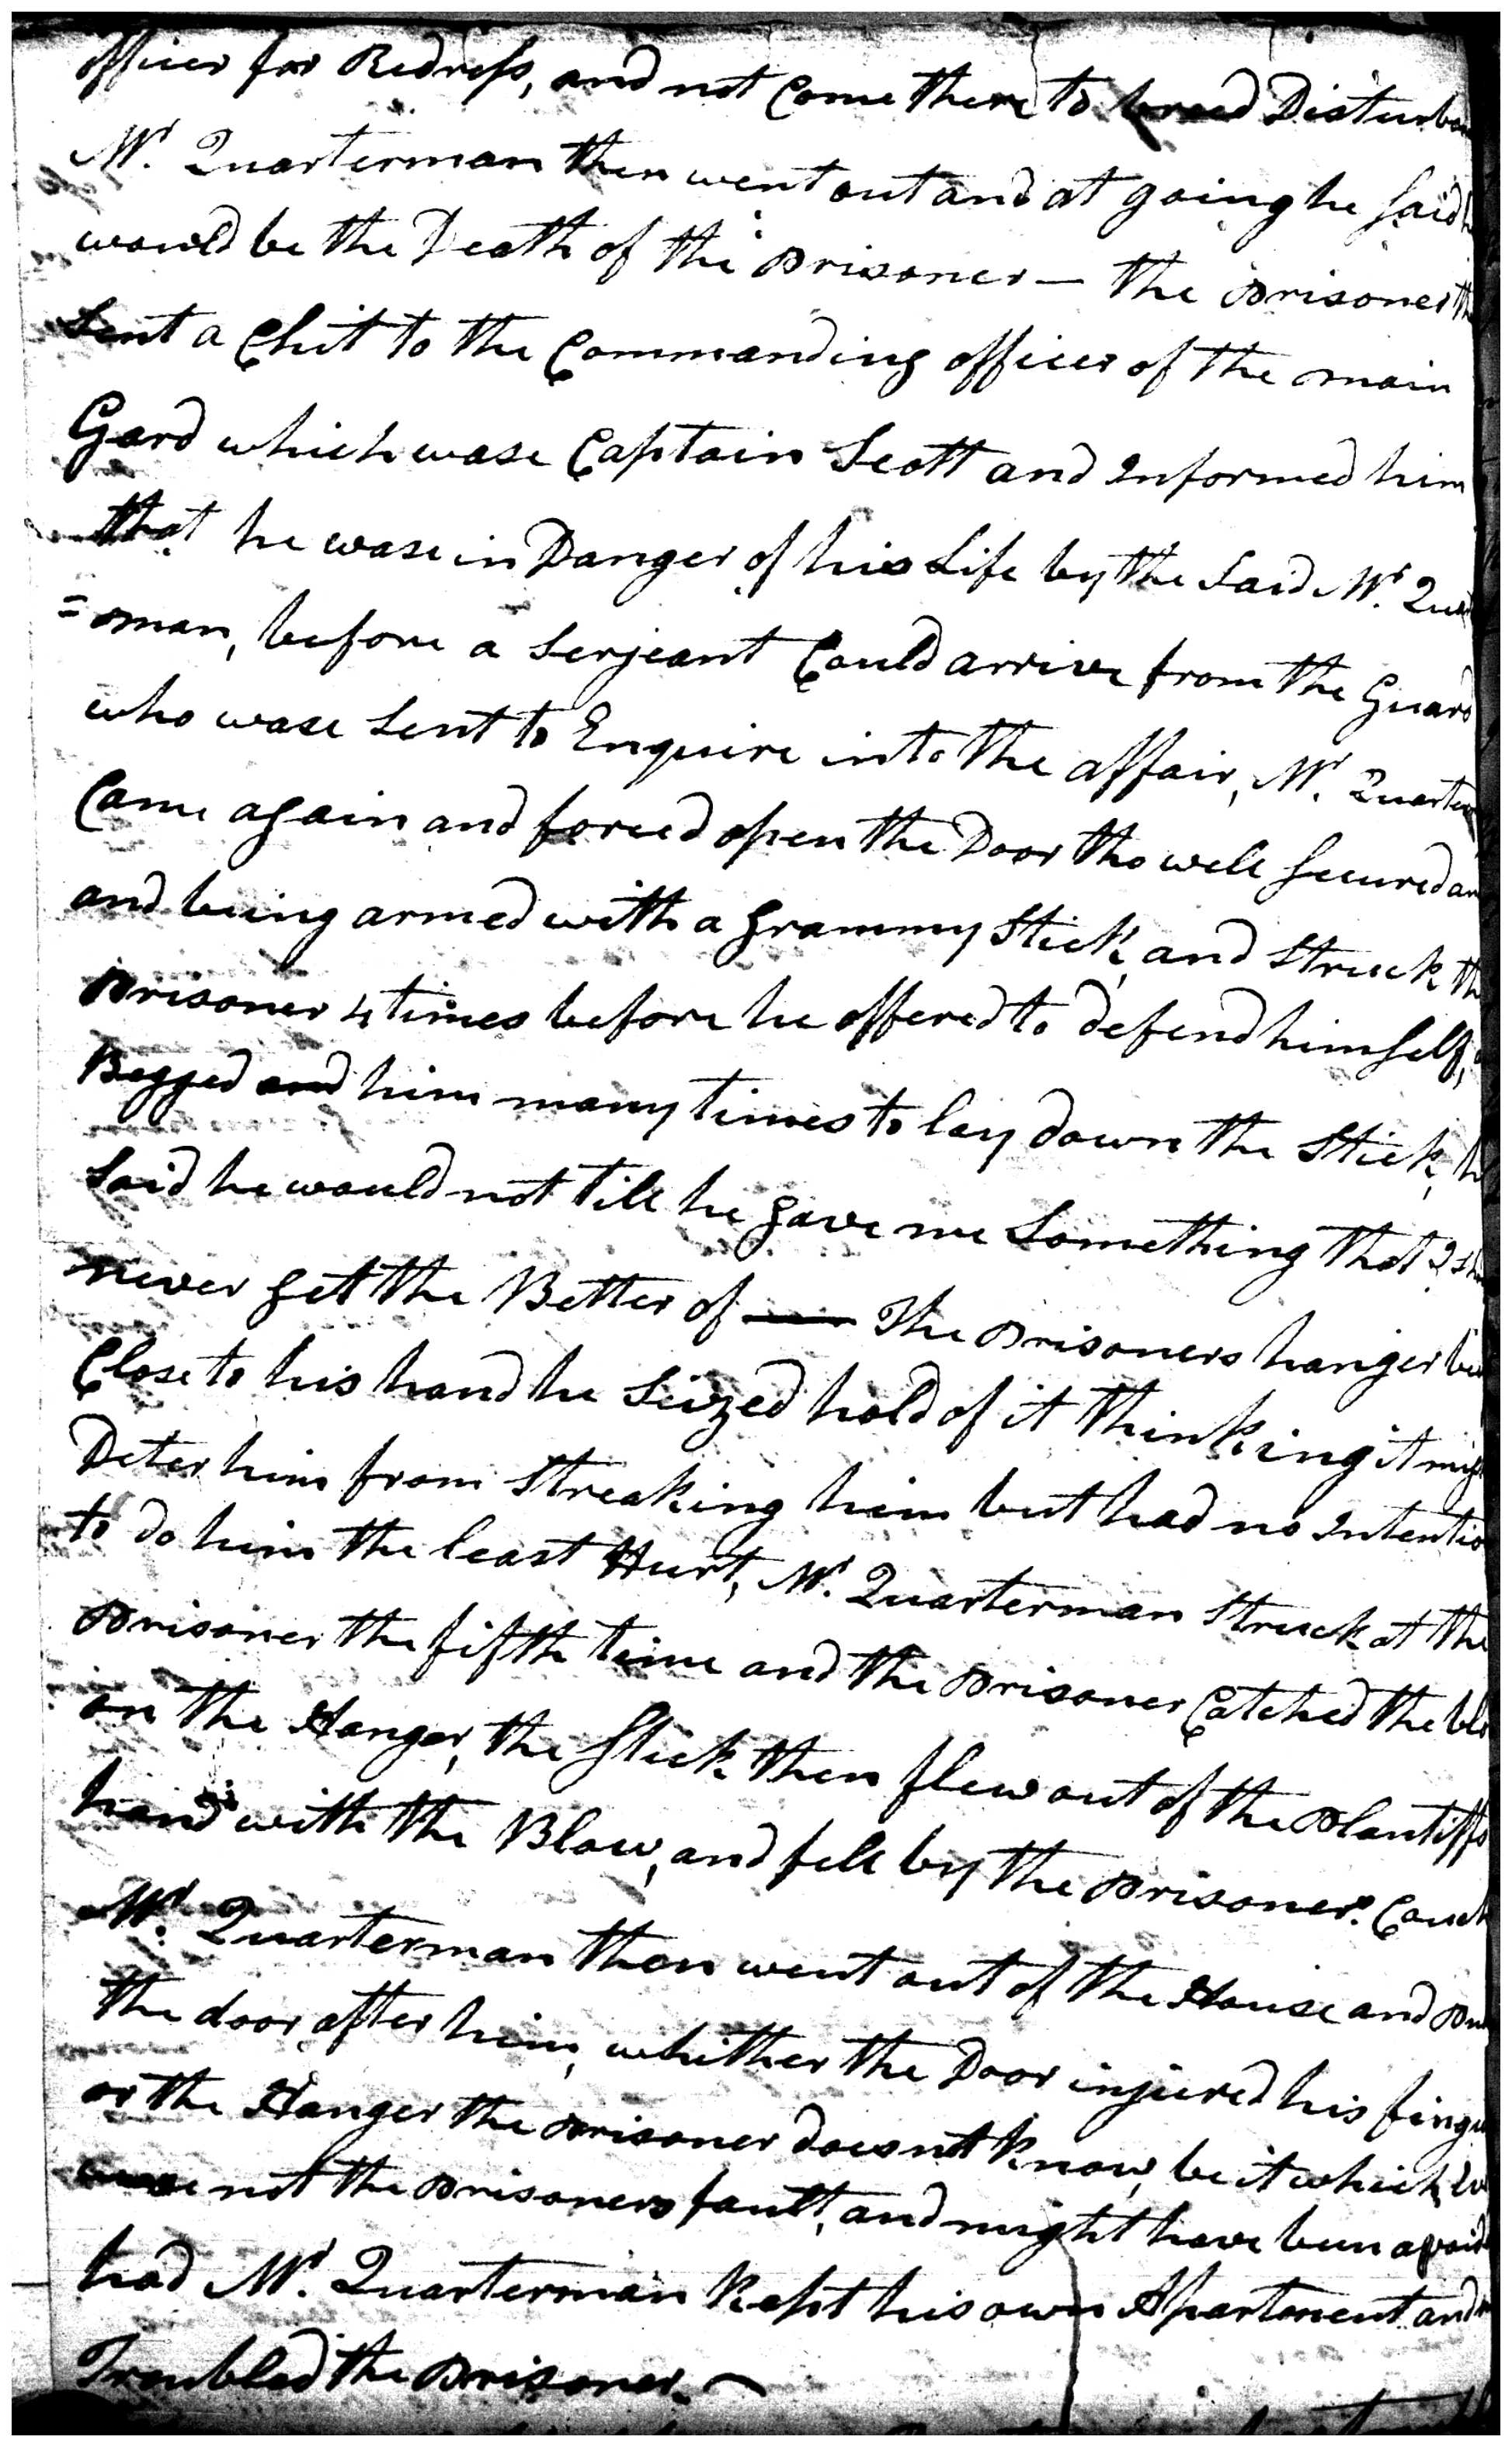 officer for Redress, and not Come there to breed Disturban
Mr. Quarterman then went out and at going he said h
would be the Death of the Prisoner — the Prisoner th
Sent a Chit to the Commanding officer of the main
Gard which wase Captain Scott and Informed him
that he wase in Danger of his Life by the Said Mr. Quar
=oman, before a Serjeant Could arrive from the Guard
who wase Sent to Enquire into the affair, Mr. Quarter
Came again and forced open the Door tho well Secured an
and being armed with a Grammy Stick, and Struck th
Prisoner 4 times before he offered to defend himself,
Begged and him many times to lay down the Stick, h
Said he would not till he gave me Something that I sh
never get the Better of — The Prisoners hanger be
Close to his hand he Seized hold of it thinking it migh
Deter him from Streaking him but had no Intentio
to do him the least Hurt, Mr. Quarterman Struck at the
Prisoner the fifth time and the Prisoner Catched the blo
on the Hanger, the Stick then flew out of the Plantiffs
hand with the Blow, and fell by the Prisoners Couch
Mr. Quarterman then went out of the House and Pu
the door after him, whither the Door injured his finge
or the Hanger the Prisoner does not know, be it which
wase not the Prisoners fault, and might have been avoid
had Mr. Quarterman Kept his own Apartment and
Troubled the Prisoner. —